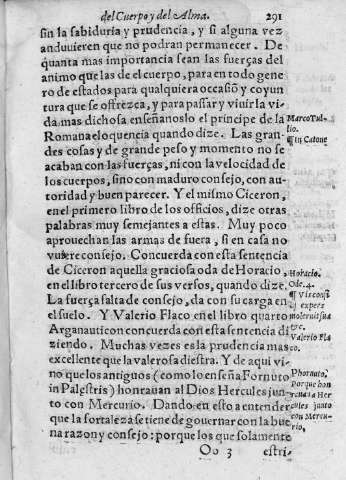 del Cuerpo y del Alma. 291
sin la sabiduria y prudencia, y si alguna vez
anduuieren que no podran permanecer. De
quanta mas importancia sean las fuerças del
animo que las de el cuerpo, para en todo gene
ro de estados para qualquiera occasiõ y coyun
tura que se ofrezca, y para passar y viuir la vi-
da mas dichosa enseñanoslo el principe de la
Romana eloquencia quando dize. Las gran-
des cosas y de grande peso y momento no se
acaban con las fuerças, ni con la velocidad de
los cuerpos, sino con maduro consejo, con au-
toridad y buen parecer. Y el mismo Ciceron,
en el primero libro de los officios, dize otras
palabras muy semejantes a estas. Muy poco
aprouechan las armas de fuera, si en casa no
vuiere consejo. Concuerda con esta sentencia
de Ciceron aquella graciosa oda de Horacio,
en el libro tercero de sus versos, quando dize.
La fuerça falta de consejo, da con su carga en
el suelo. Y Valerio Flaco en el libro quarto
Arganauticon concuerda con esta sentencia di
ziendo. Muchas vezes es la prudencia mas
excellente que la valerosa diestra. Y de aqui vi-
no que los antiguos (como lo enseña Fornuto
in Palestris) honrauan al Dios Hercules jun-
to con Mercurio. Dando en esto a entender
que la fortaleza se tiene de gouernar con la bue
na razon y consejo: porque los que solamente
Oo 3 estri-
Marco Tul-
lio.
¶ In Catone
Horacio.
Ode. 4.
¶ Vis consi
lij expers
mole ruit sua
etc.
Valerio Fla
co.
Phornuto.
Porque hon
raua la Her
cules junto
con Mercu-
rio,